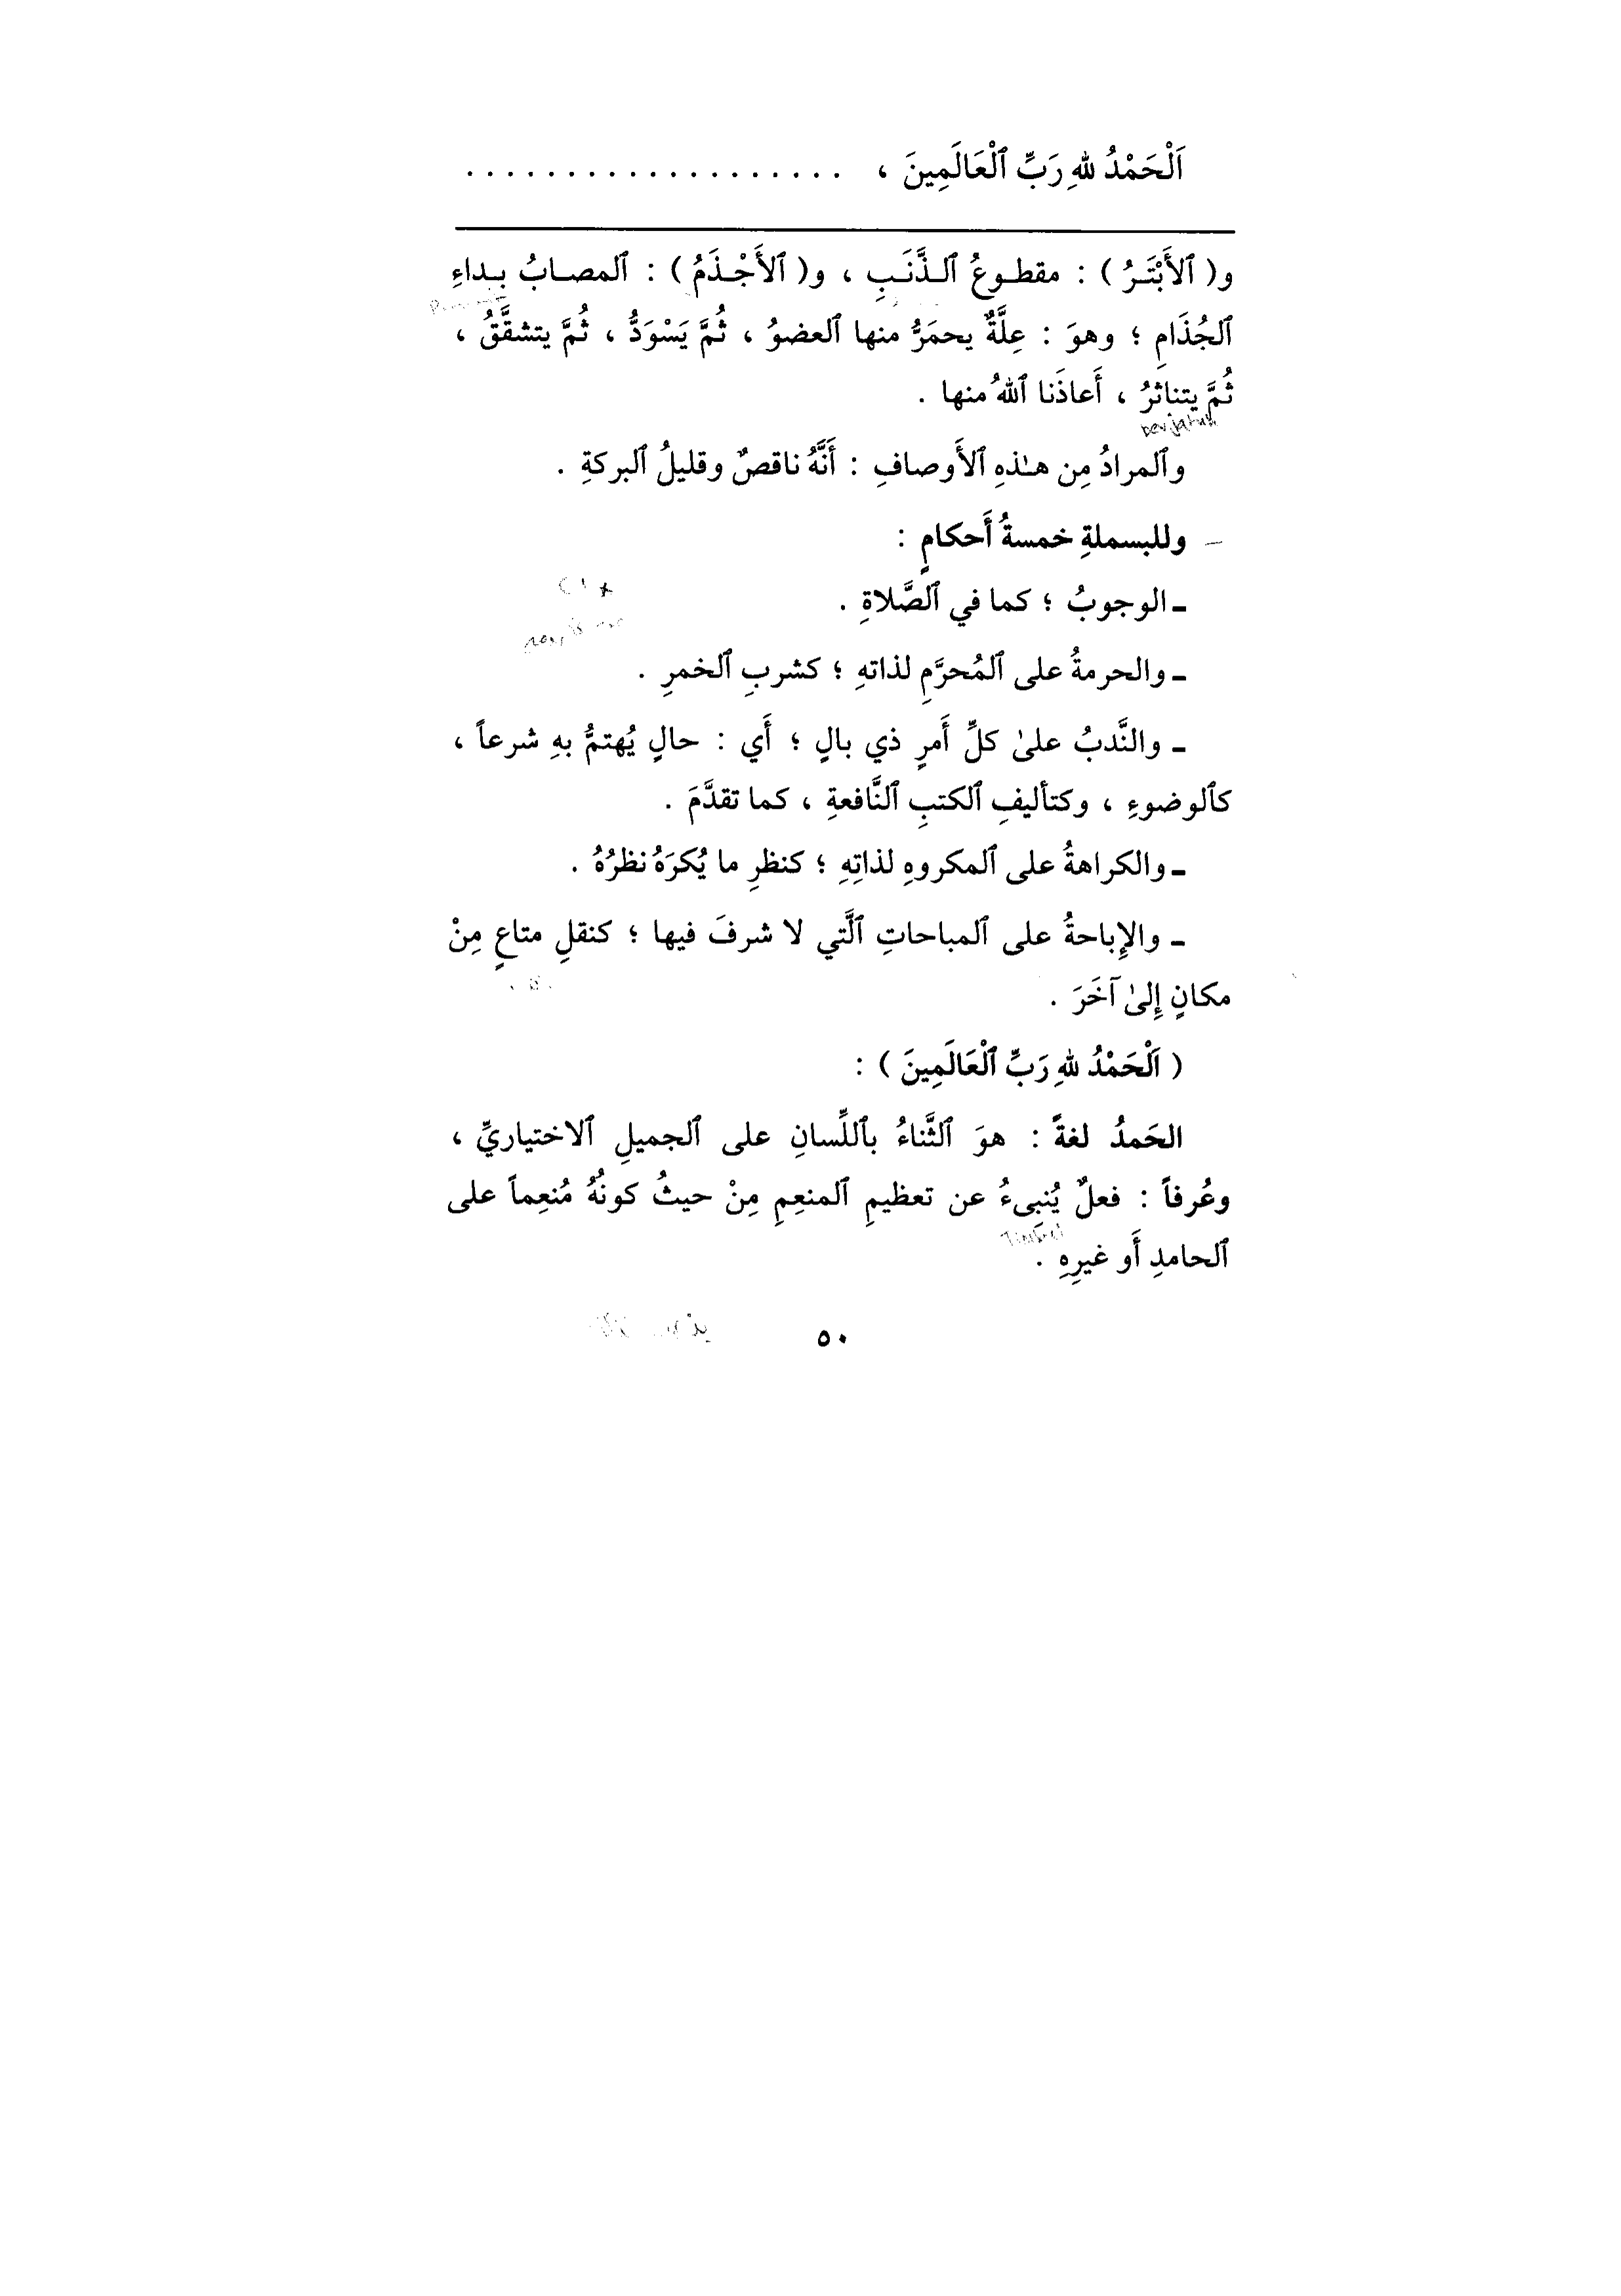 اَلْحَمْدُ للهِ رَبِّ ٱلْعَالَمِينَ ، . . . . . . . . . . . . . . . . . . .
و( ٱلأَبْتَـرُ ) : مقطـوعُ ٱلـذَّنَـبِ ، و( ٱلأَجْـذَمُ ) : ٱلمصـابُ بـداءِ
ٱلجُذَامِ ؛ وهوَ : عِلَّةٌ يحمَرُّ منها ٱلعضوُ ، ثُمَّ يَسْوَدُّ ، ثُمَّ يتشقَّقُ ،
ثُمَّ يتناثرُ ، أَعاذَنا ٱللهُ منها .
berjatuh
وٱلمرادُ مِن هـٰذهِ ٱلأَوصافِ : أَنَّهُ ناقصٌ وقليلُ ٱلبركةِ .
– وللبسملةِ خمسةُ أَحكامٍ :
ـ الوجوبُ ؛ كما في ٱلصَّلاةِ .
ـ والحرمةُ على ٱلمُحرَّمِ لذاتهِ ؛ كشربِ ٱلخمرِ .
ـ والنَّدبُ علىٰ كلِّ أَمرٍ ذي بالٍ ؛ أَي : حالٍ يُهتمُّ بهِ شرعاً ،
كٱلوضوءِ ، وكتأليفِ ٱلكتبِ ٱلنَّافعةِ ، كما تقدَّمَ .
ـ والكراهةُ على ٱلمكروهِ لذاتِهِ ؛ كنظرِ ما يُكرَهُ نظرُهُ .
ـ والإِباحةُ على ٱلمباحاتِ ٱلَّتي لا شرفَ فيها ؛ كنقلِ متاعٍ مِنْ
مكانٍ إِلىٰ آخَرَ .
( اَلْحَمْدُ للهِ رَبِّ ٱلْعَالَمِينَ ) :
الحَمدُ لغةً : هوَ ٱلثَّناءُ بٱللِّسانِ على ٱلجميلِ ٱلاختياريِّ ،
وعُرفاً : فعلٌ يُنبِىءُ عن تعظيمِ ٱلمنعِمِ مِنْ حيثُ كونُهُ مُنعِماً على
ٱلحامدِ أَو غيرِهِ .
٥٠